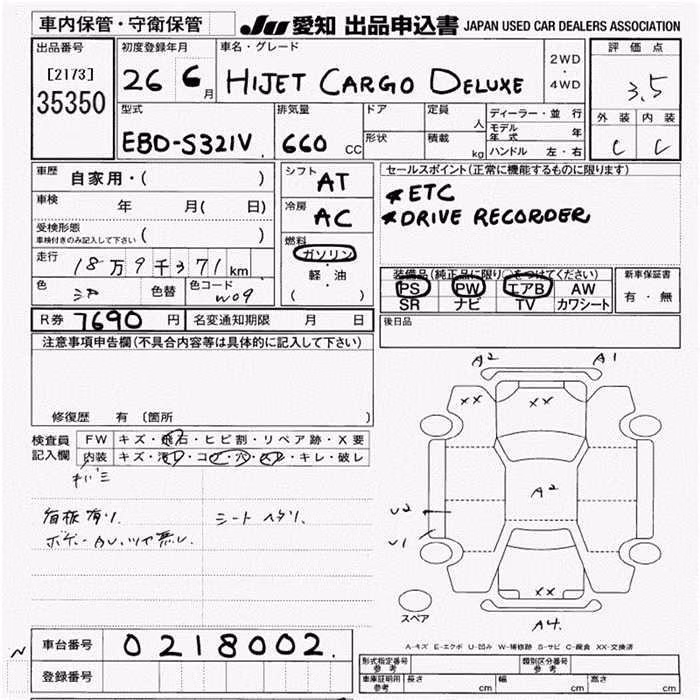 車内保管・守衛保管
JU 愛知 出品申込書 JAPAN USED CAR DEALERS ASSOCIATION
出品番号
[2173]
35350
初度登録年月
26 6月
車名・グレード
HIJET CARGO DELUXE
2WD
・
4WD
評価点
3.5
外装 内装
C C
型式
EBD-S321V
排気量
660 CC
ドア
形状
定員
人
積載
kg
ディーラー・並行
モデル年式 年
ハンドル 左・右
車歴 自家用・( )
車検 年 月( 日)
受検形態
車検付きのみ記入して下さい ( )
走行 18万9千371km
色 シロ 色替 色コード W09
シフト
AT
冷房
AC
燃料
ガソリン
・
軽・油
( )
セールスポイント(正常に機能するものに限ります)
*ETC
*DRIVE RECORDER
装備品(純正品に限り○をつけてください)
PS PW エアB AW
SR ナビ TV カワシート
新車保証書
有・無
R券 7690 円 名変通知期限 月 日
後日品
注意事項申告欄(不具合内容等は具体的に記入して下さい)
修復歴 有 〔箇所
検査員記入欄
FW キズ・飛石・ヒビ割・リペア跡・X要
内装 キズ・汚レ・コゲ・穴・スレ・キレ・破レ
看板有り、 シートヘタリ、
ボデーAU、ツヤ無し
A2 A1
XX XX
A2
U2
U1
XX
A4.
スペア
A-キズ E-エクボ U-凹み W-補修跡 S-サビ C-腐食 XX-交換済
車台番号 0218002.
登録番号
N
形式指定番号 参考
類別区分番号 参考
車庫証明用 参考 長さ cm 幅 cm 高さ cm